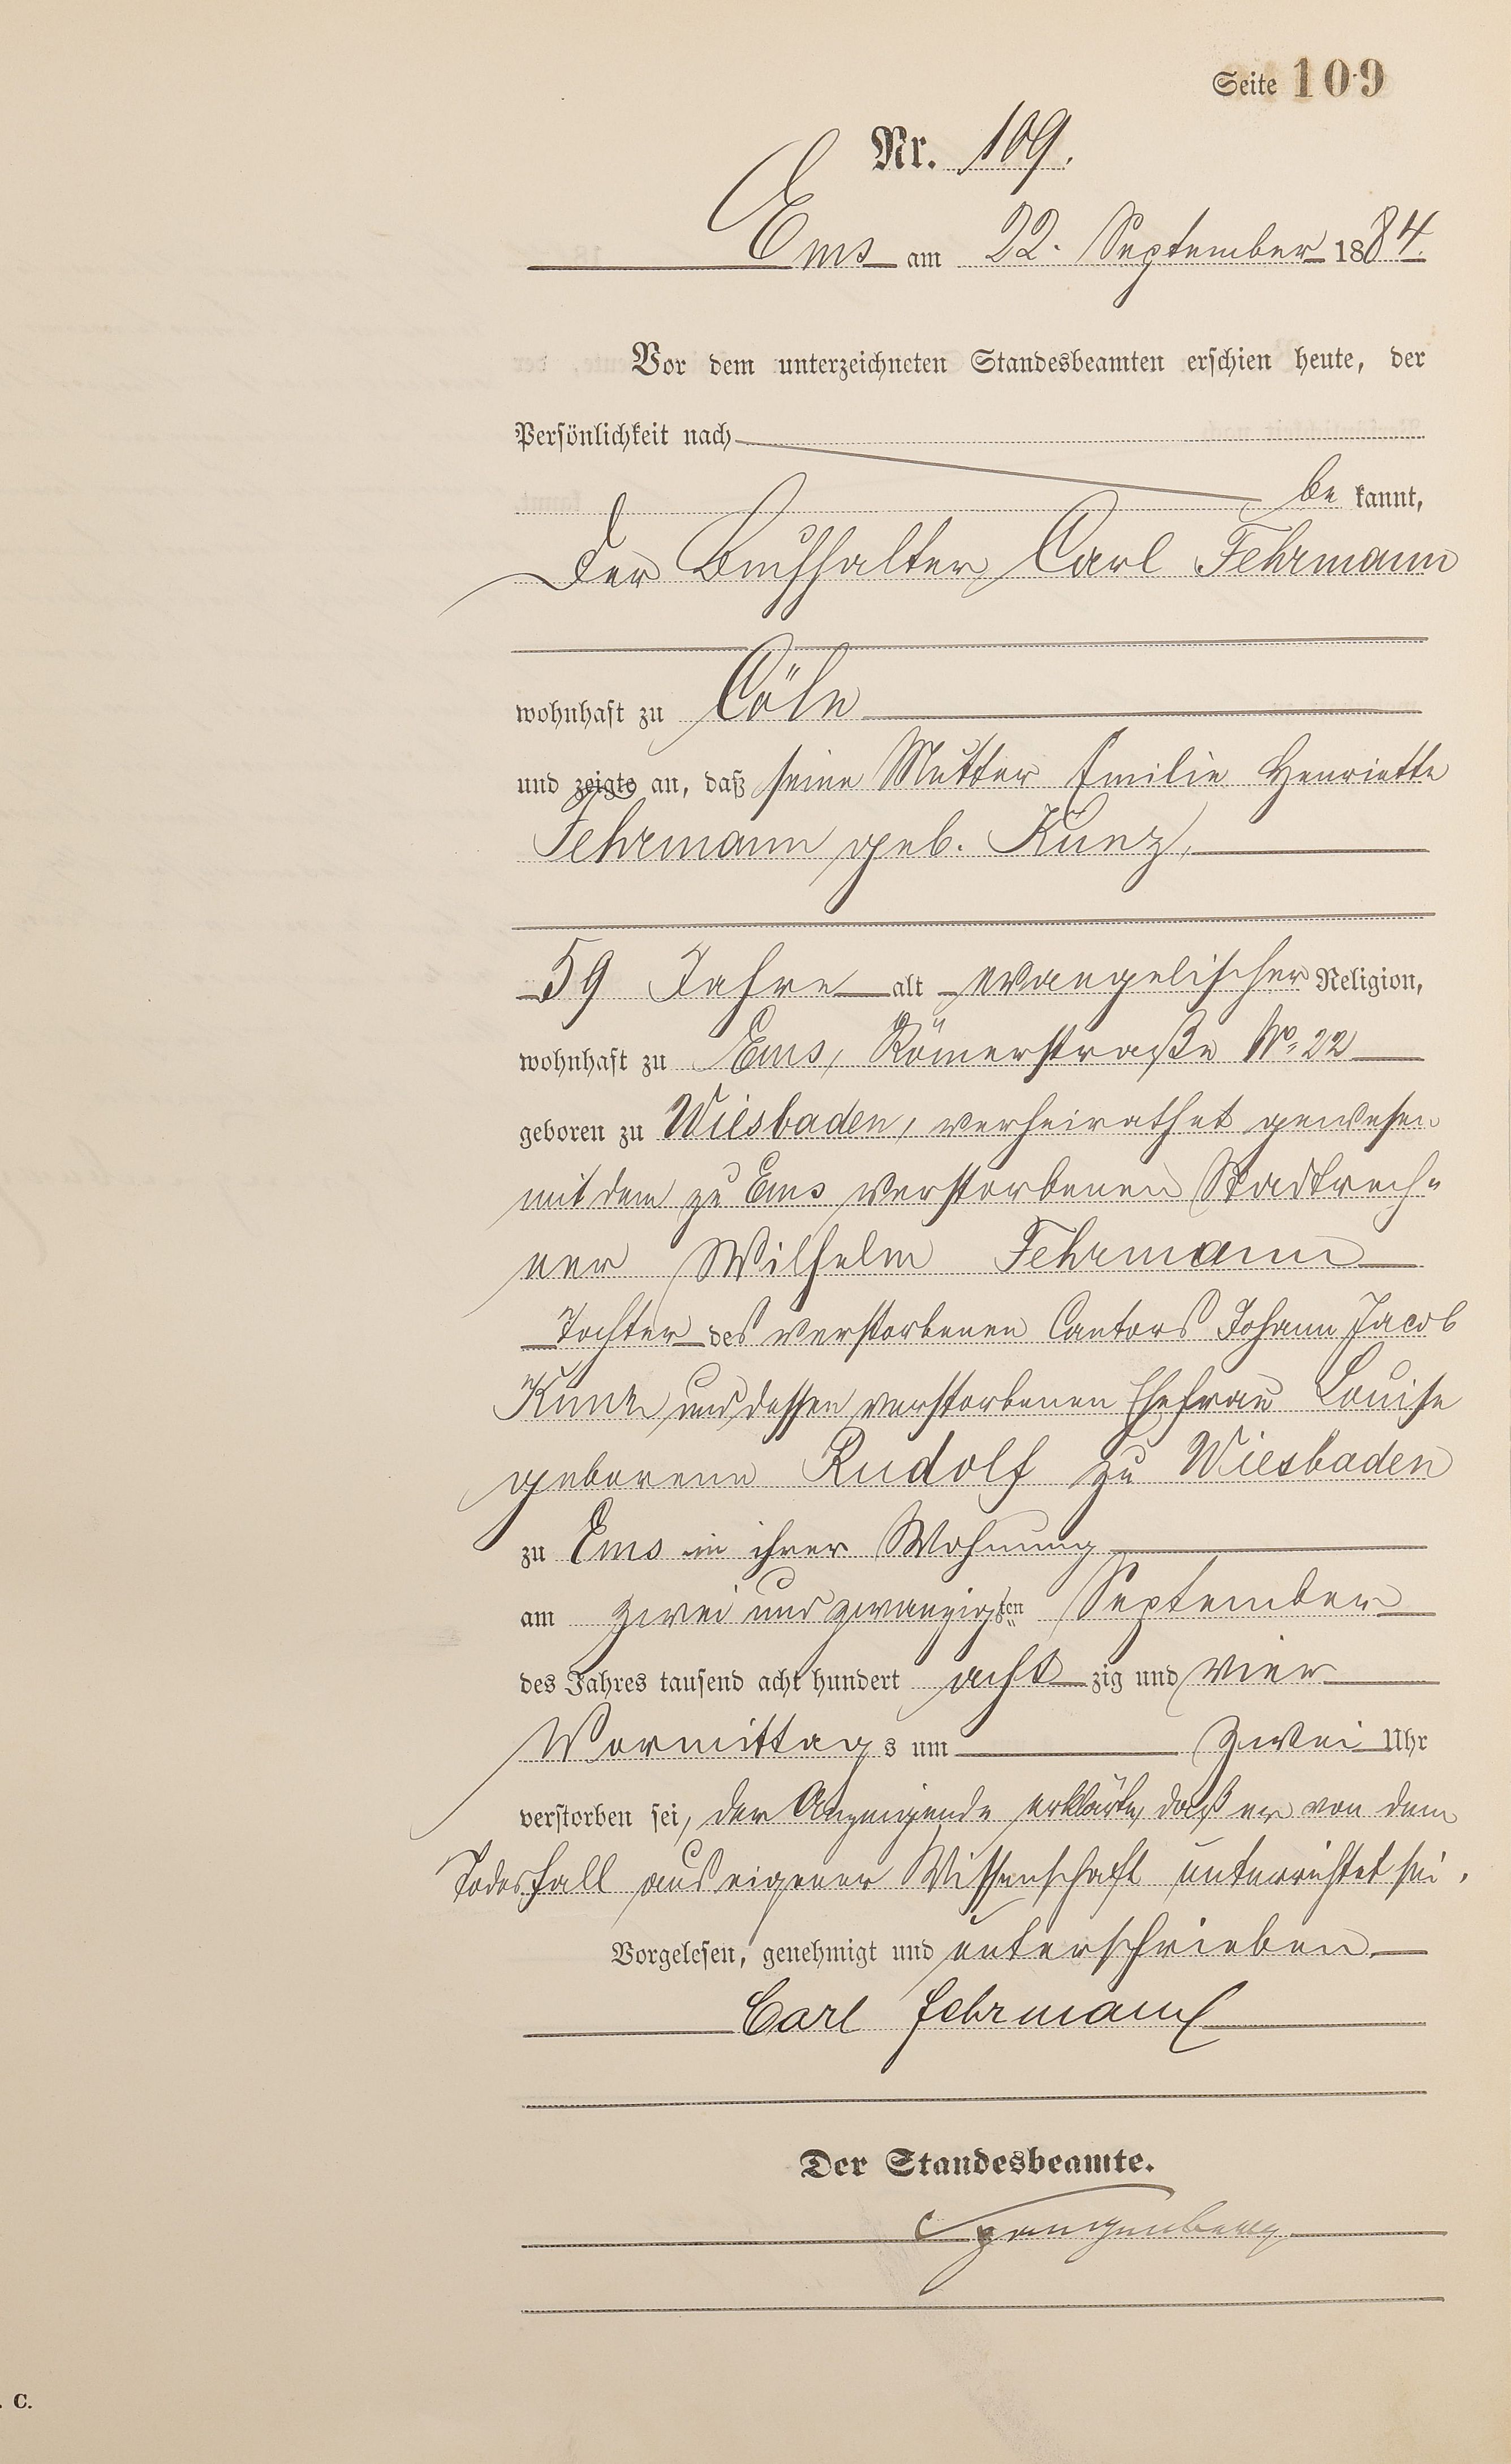 Seite 109
Nr. 109.
Ems am 22. September 1884.
Vor dem unterzeichneten Standesbeamten erschien heute, der
Persönlichkeit nach
be kannt,
der Buchhalter Carl Fehrmann
wohnhaft zu Cöln
und zeigte an, daß seine Mutter Emilie Henriette
Fehrmann geb. Kunz,
59 Jahre alt evangelischer Religion,
wohnhaft zu Ems, Römerstraße No 22
geboren zu Wiesbaden, verheirathet gewesen
mit dem zu Ems verstorbenen Stadtrech-
ner Wilhelm Fehrmann
Tochter des verstorbenen Cantors Johann Jacob
und dessen verstorbenen Ehefrau Louise
geborene Rudolf zu Wiesbaden
zu Ems in ihrer Wohnung
am zwei und zwanzigsten September
des Jahres tausend acht hundert acht zig und vier
Vormittags um zwei Uhr
verstorben sei, der Anzeigende erklärte, daß er von dem
Todesfall aus eigener Wissenschaft unterrichtet sei.
Vorgelesen, genehmigt und unterschrieben
Carl Fehrmann
Der Standesbeamte.
Spangenberg
. C.